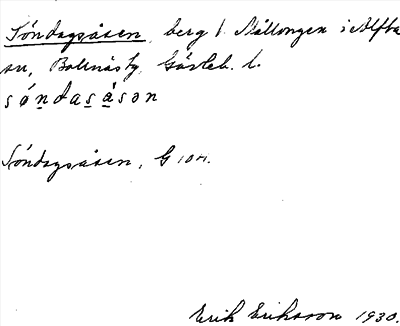 Söndagsåsen, berg i. Mållongen i Alfta
sn, Bollnäs tg, Gävleb. l.
söndasåsən
Söndagsåsen, G 104.
Erik Eriksson 1930.